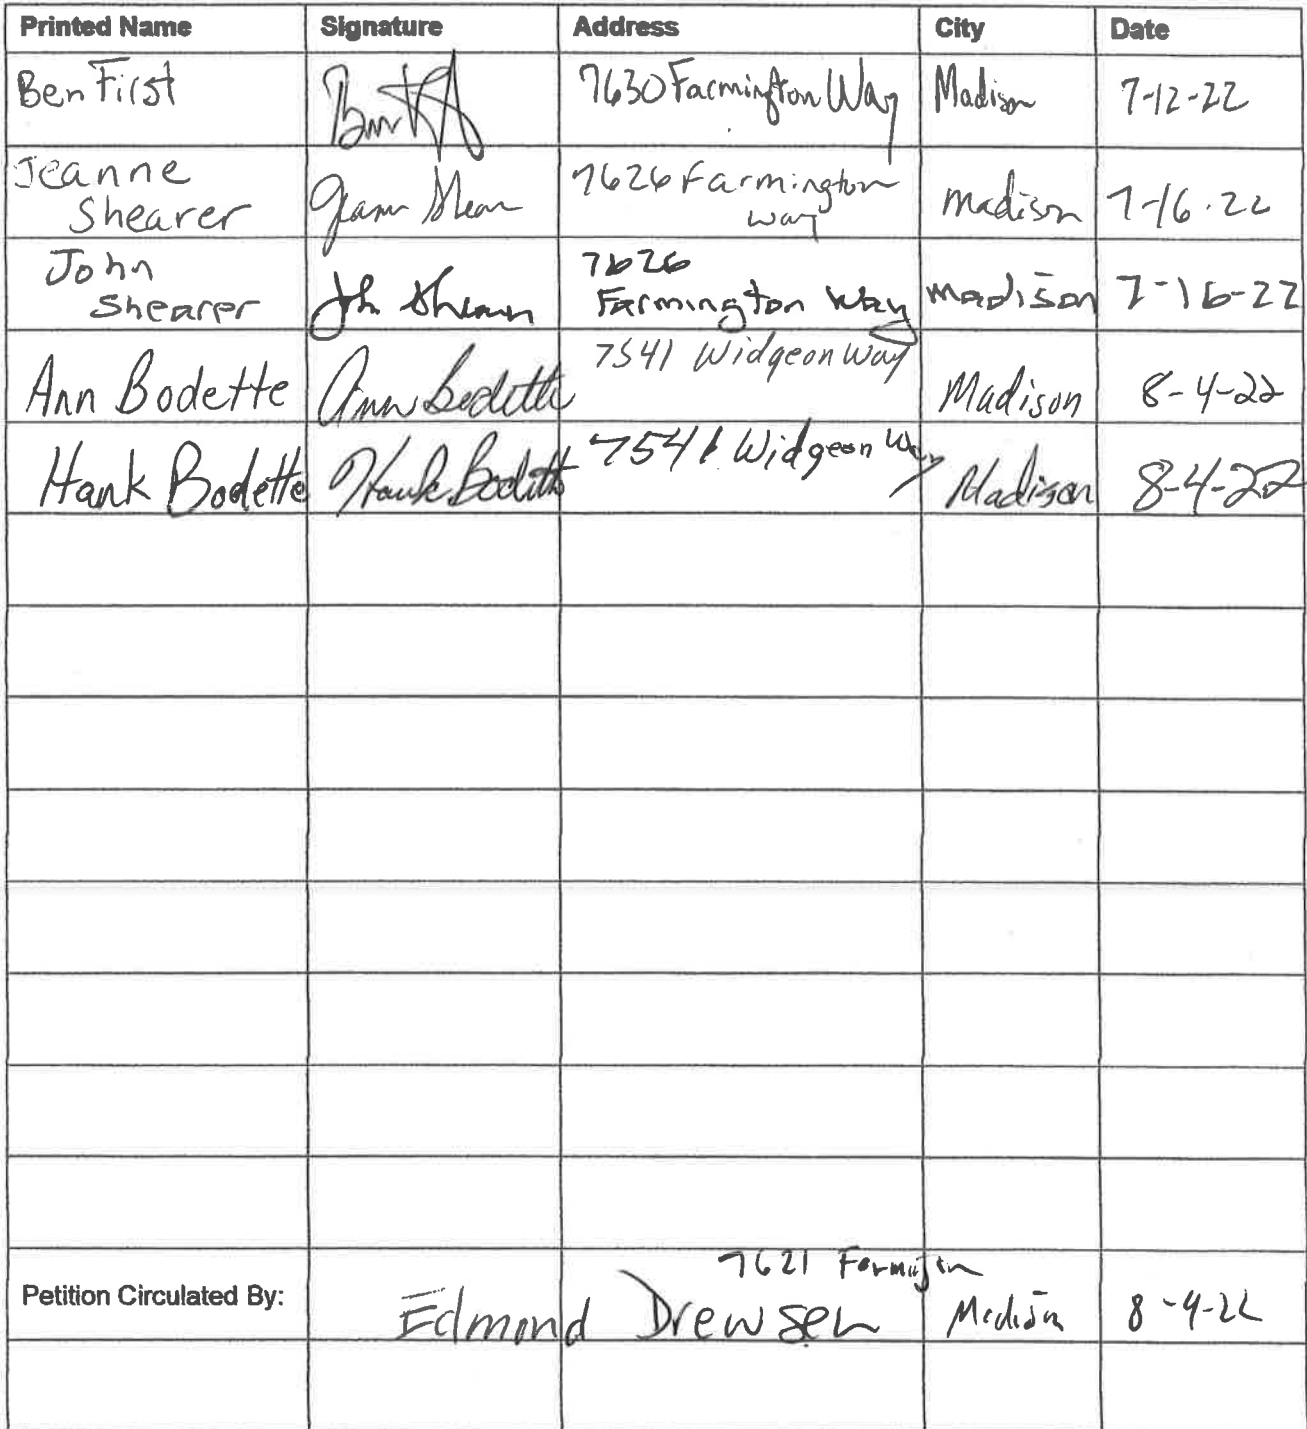 Printed Name Signature Address City Date
Ben First 7630 Farmington Way Madison 7-12-22
Jeanne
Shearer 7626 Farmington
Way Madison 7-16-22
John
Shearer John Shearer 7626
Farmington Way Madison 7-16-22
Ann Bodette Ann Bodette 7541 Widgeon Way Madison 8-4-22
Hank Bodette Hank Bodette 7541 Widgeon Way Madison 8-4-22
7621 Farmington
Petition Circulated By: Edmond Drewsen Madison 8-4-22